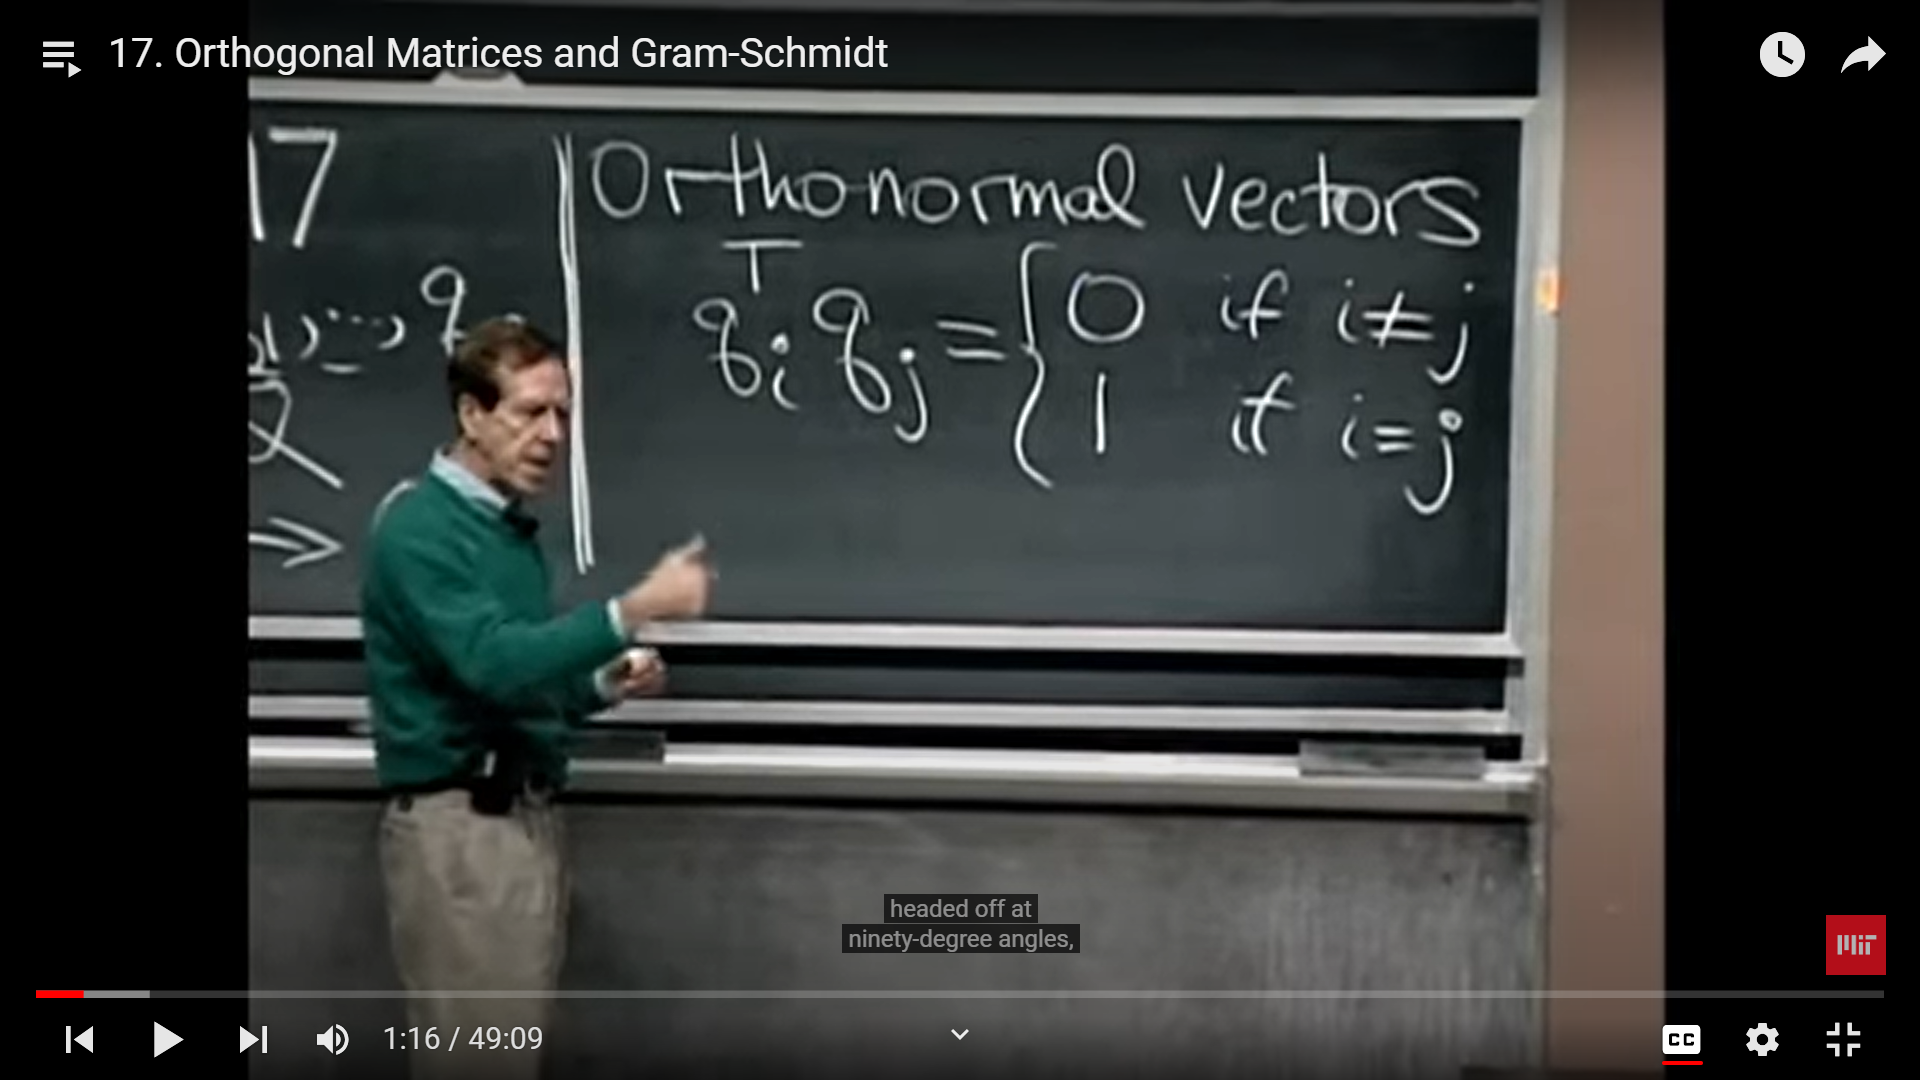 17. Orthogonal Matrices and Gram-Schmidt
17
Orthonormal vectors
qᵢᵀqⱼ = { 0 if i≠j
1 if i=j
q
headed off at
ninety-degree angles,
MIT
1:16 / 49:09
CC